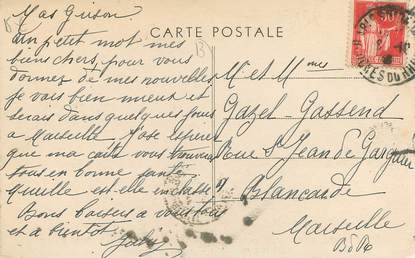 CARTE POSTALE
Mas Grison.
un petit mot mes
biens chers, pour vous
donner de mes nouvelles
je vais bien mieux et
serais dans quelques jours
a Marseille J'ose esperer
que ma carte vous trouvera
tous en bonne santé
est elle in classe
Bons baisers a vous tous
et a bientot
M et Mmes
Gazel-Gassend
Rue St Jean de Garguier
Blancarde
Marseille
B d R